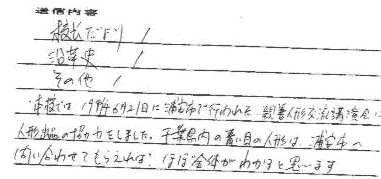 送信内容
校長だより 1
沿革史 1
その他 1
本校では1994年6月21日に浦安市で行われた親善人形交流講演会に
人形の協力をしました。千葉県内の青い目の人形は、浦安市へ
問い合わせてもらえれば、ほぼ全体がわかると思います